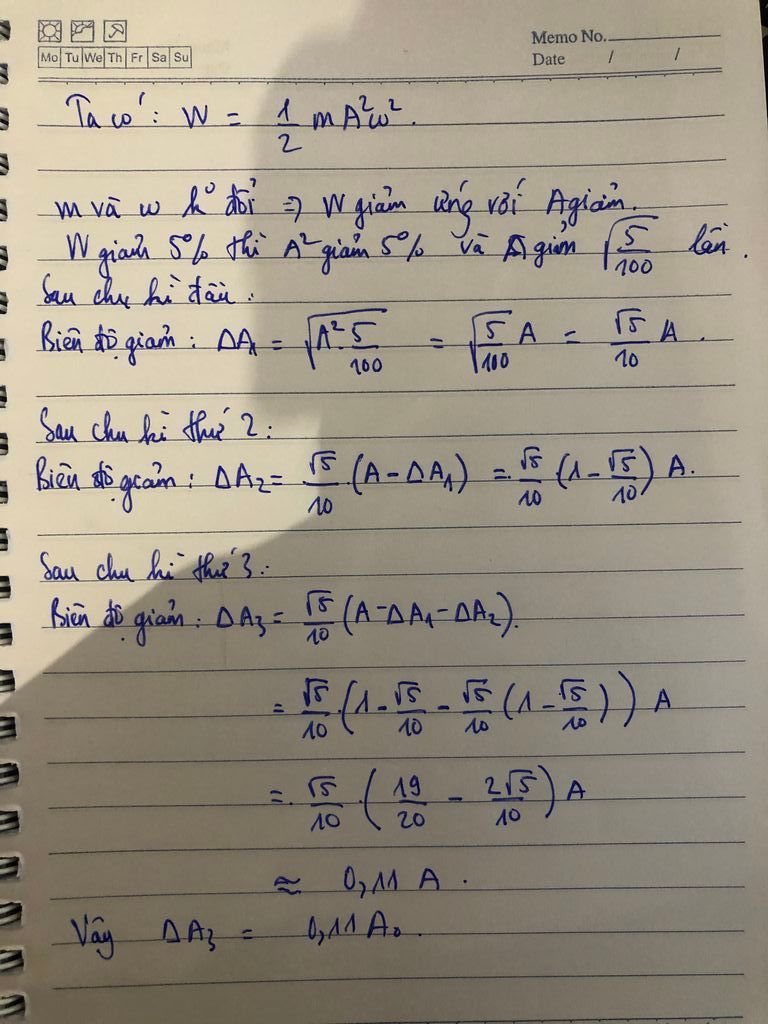 Memo No.
Mo Tu We Th Fr Sa Su
Date / /
Ta có: W = 1/2 mA²ω².
m và ω k° đổi => W giảm ứng với A giảm.
W giảm 5% thì A² giảm 5% và A giảm √(5/100) lần.
Sau chu kì đầu:
Biên độ giảm: ΔA₁ = √(A²·5/100) = √(5/100) A = √5/10 A.
Sau chu kì thứ 2:
Biên độ giảm: ΔA₂ = √5/10 (A - ΔA₁) = √5/10 (1 - √5/10) A.
Sau chu kì thứ 3:
Biên độ giảm: ΔA₃ = √5/10 (A - ΔA₁ - ΔA₂).
= √5/10 (1 - √5/10 - √5/10 (1 - √5/10)) A
= √5/10 · (19/20 - 2√5/10) A
≈ 0,11 A.
Vậy ΔA₃ = 0,11 A₀.